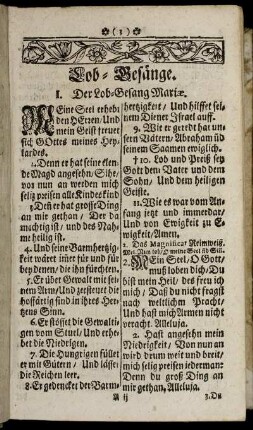 (1)
Lob-Gesänge.
I. Der Lob-Gesang Mariæ.
MEine Seel erhebt
den HErren/Und
mein Geist freuet
sich GOttes meines Hey-
landes.
2. Denn er hat seine elen-
de Magd angesehen/Sihe/
von nun an werden mich
selig preisen alle Kindeskind
3. Denn er hat grosse Ding
an mir gethan/ Der da
mächtig ist/ und des Nah-
me heilig ist.
4. Und seine Barmhertzig-
keit wäret für und für
bey denen/ die ihn fürchten.
5. Er übet Gewalt mit sei-
nem Arme/Und zerstreuet die
hoffärtig sind in ihres Her-
tzens Sinn.
6. Er stösset die Gewalti-
gen vom Stuel/ Und erhe-
bet die Nidrigen.
7. Die Hungrigen füllet
er mit Gütern/ Und lässet
die Reichen leer.
8. Er gedencket der Barm-
hertzigkeit/ Und hilffet sei-
nem Diener Israel auff.
9. Wie er geredt hat un-
sern Vätern/Abraham uñ
seinem Saamen ewiglich.
†10. Lob und Preiß sey
Gott dem Vater und dem
Sohn/ Und dem heiligen
Geiste.
11. Wie es war vom An-
fang jetzt und immerdar/
Und von Ewigkeit zu E-
wigkeit/Amen.
2. Das Magnificat Reimweiß.
2. MEin Seel/O Gott/
muß loben dich/Du
bist mein Heil/ des freu ich
mich/ Daß du nicht fragst
nach weltlichem Pracht/
Und hast mich Armen nicht
veracht. Alleluja.
2. Hast angesehen mein
Niedrigkeit/ Von nun an
wird drum weit und breit/
mich selig preisen jederman:
Denn du groß Ding an
mir gethan, Alleluja.
A ij
3. Du